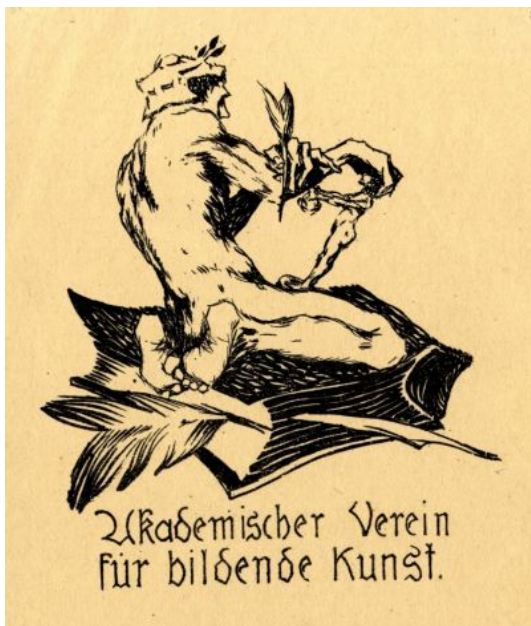 Akademischer Verein
für bildende Kunst.